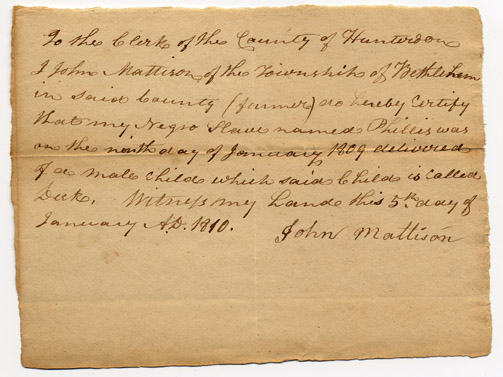 To the Clerk of the County of Hunterdon
I John Mattison of the Township of Bethlehem
in said County (farmer) do hereby Certify
that my Negro Slave named Phillis was
on the ninth day of January 1809 delivered
of a male Child which said Child is called
Dick. Witness my hand this 5th day of
January A.D. 1810.
John Mattison